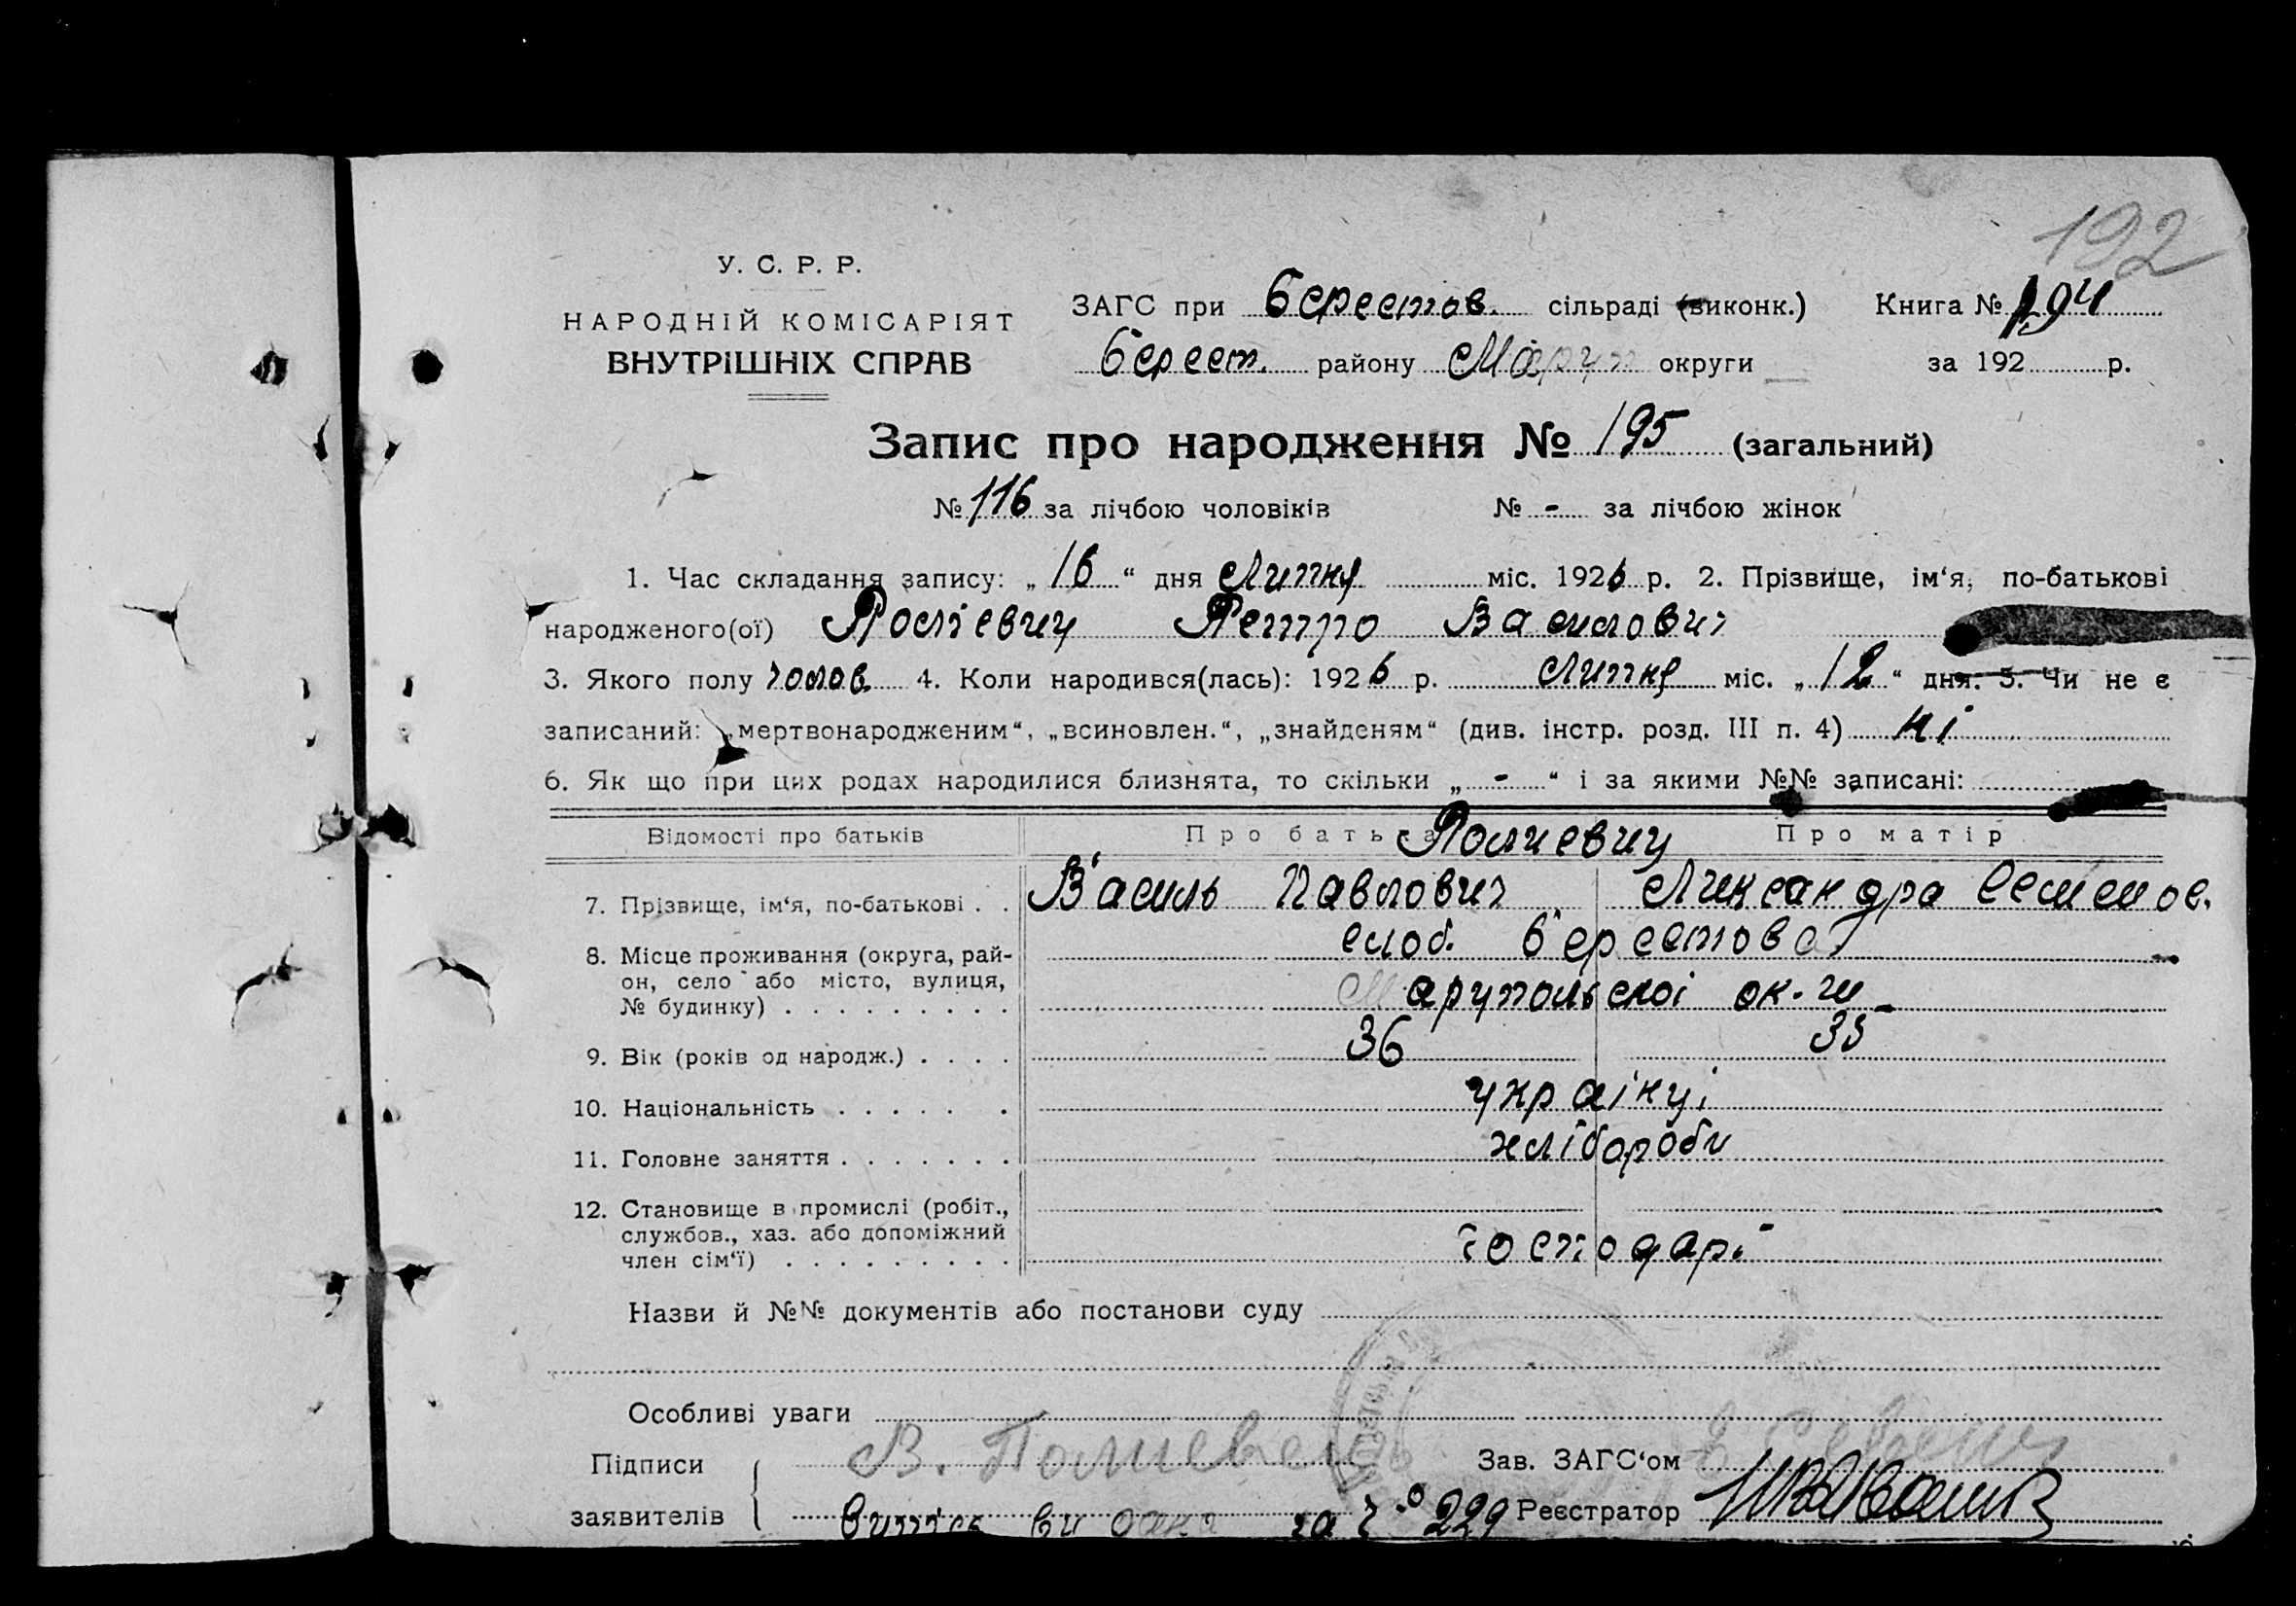 192
У. С. Р. Р.
НАРОДНІЙ КОМІСАРІЯТ
ВНУТРІШНІХ СПРАВ
ЗАГС при Берестов. сільраді (виконк.) Книга № 194
Берест. району Маруп округи за 192 р.
Запис про народження № 195 (загальний)
№ 116 за лічбою чоловіків № - за лічбою жінок
1. Час складання запису: „16“ дня Липня міс. 1926 р. 2. Прізвище, ім‘я, по-батькові
народженого(ої) Полієвиц Петро Василович
3. Якого полу чолов. 4. Коли народився(лась): 1926 р. Липня міс. „12“ дня. 5. Чи не є
записаний: „мертвонародженим“, „всиновлен.“, „знайденям“ (див. інстр. розд. III п. 4) ні
6. Як що при цих родах народилися близнята, то скільки „-“ і за якими №№ записані:
Відомості про батьків Про батька Полиевиц Про матір
7. Прізвище, ім‘я, по-батькові . . Василь Павлович Ликсандра Семенов.
8. Місце проживання (округа, рай-
он, село або місто, вулиця,
№ будинку) . . . . . . . . .
слоб. Берестова
Марупольскоі ок-ги
9. Вік (років од народж.) . . . . 36 35
10. Національність . . . . . . українці
11. Головне заняття . . . . . . . хлібороби
12. Становище в промислі (робіт.,
службов., хаз. або допоміжний
член сім‘ї) . . . . . . . . .
господарі
Назви й №№ документів або постанови суду
Особливі уваги
Підписи
заявителів
В. Полиевец
Зав. ЗАГС‘ом
за № 229 Реєстратор